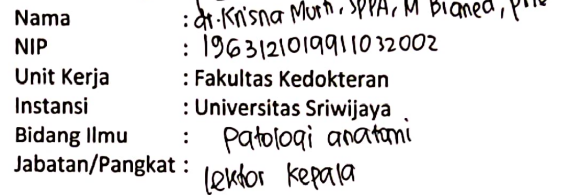 Nama : dr. Krisna Murti, SPPA, M Biomed, PhD
NIP : 196312101991103 2002
Unit Kerja : Fakultas Kedokteran
Instansi : Universitas Sriwijaya
Bidang Ilmu : Patologi anatomi
Jabatan/Pangkat : lektor kepala